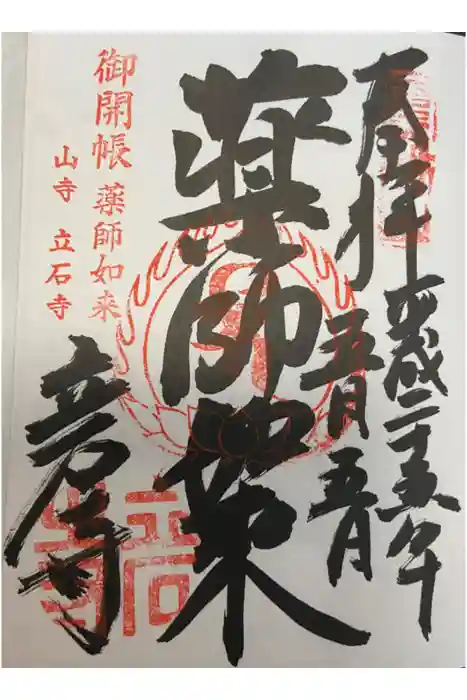 奉拝
平成二十五年
五月五日
薬師如来
御開帳 薬師如来
山寺 立石寺
立石寺
立石寺